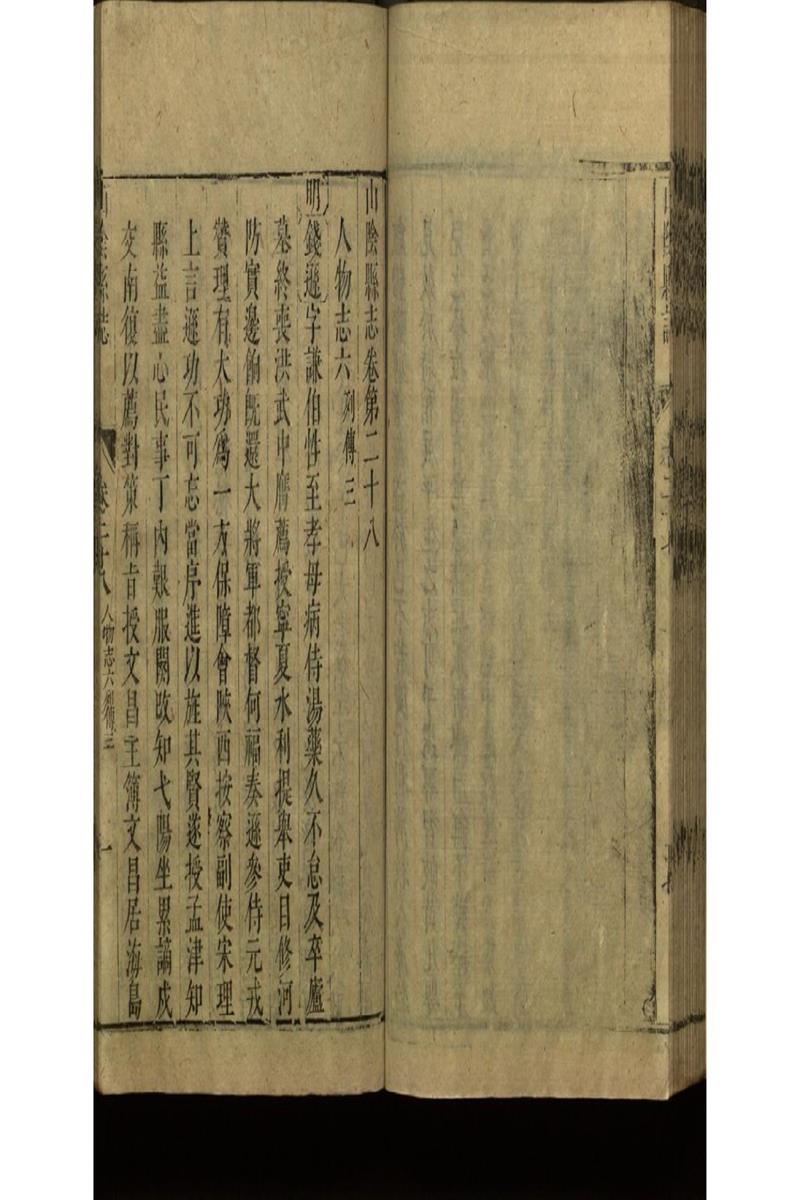 山陰縣志卷第二十八
人物志六列傳三
明錢遜字謙伯性至孝母病侍湯藥久不怠及卒廬
墓終喪洪武中膺薦授寧夏水利提舉吏目修河
防實邊餉旣還大將軍都督何福奏遜參侍元戎
贊理有大功爲一方保障會陜西按察副使宋理
上言遜功不可忘當序進以旌其賢遂授孟津知
縣益盡心民事丁內艱服闋改知弋陽坐累謫戍
交南復以薦對策稱旨授文昌主簿文昌居海島
山陰縣志
卷二十八
人物志六列傳三
一